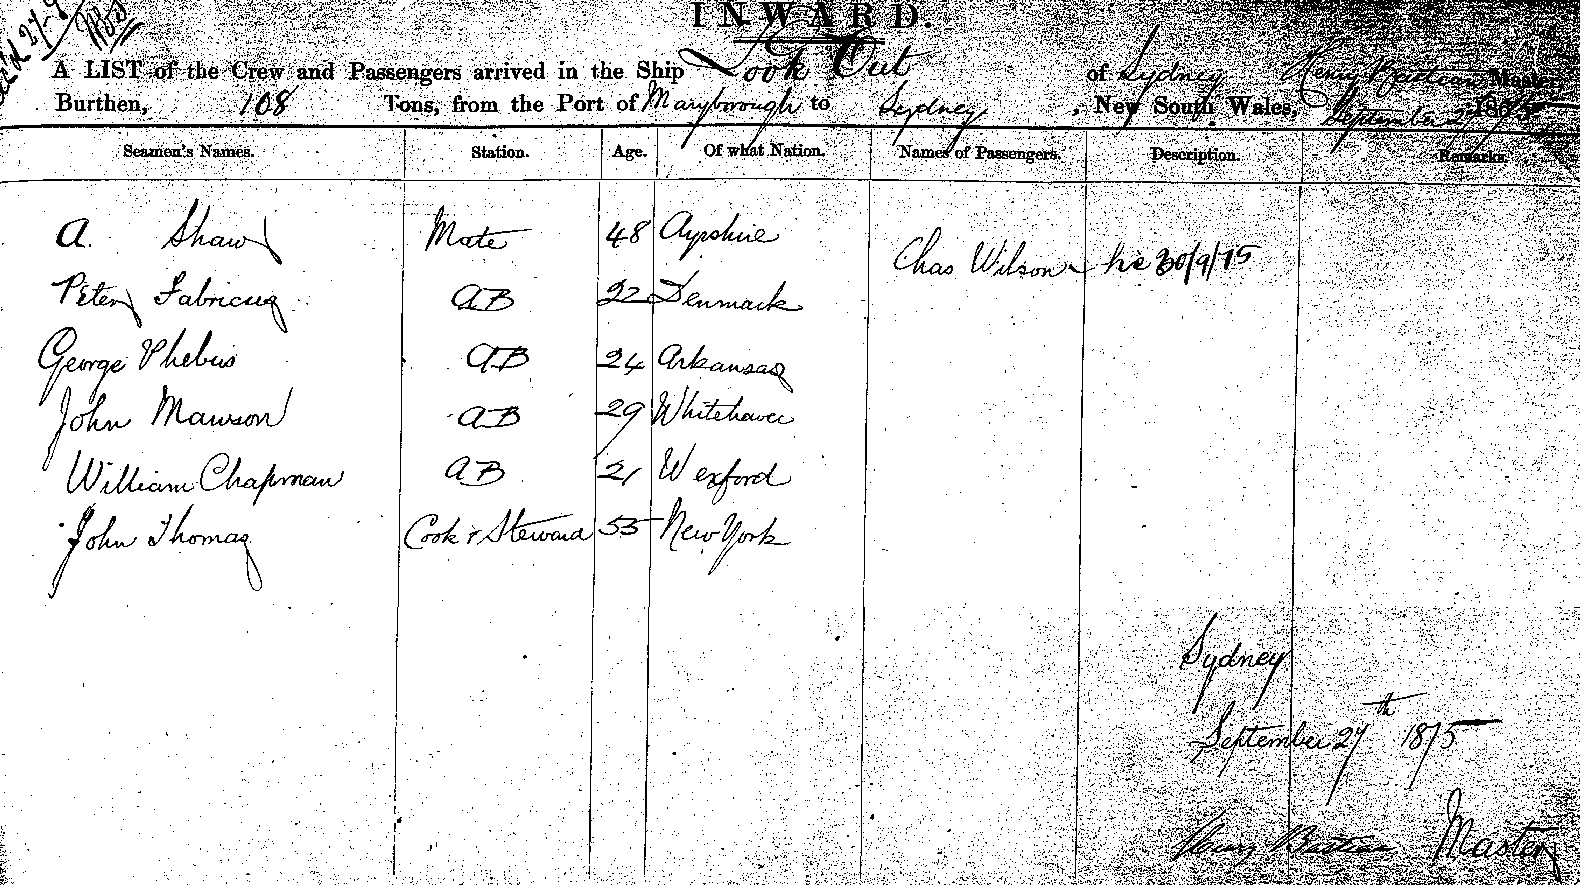 INWARD.
A LIST of the Crew and Passengers arrived in the Ship Look Out of Sydney Henry Master,
Burthen, 108 Tons, from the Port of Maryborough to Sydney, New South Wales, September 27 1875
Seamen's Names. Station. Age. Of what Nation. Names of Passengers. Description. Remarks.
A. Shaw Mate 48 Ayrshire
Chas Wilson 30/9/75
Peter Fabricus AB 22 Denmark
George Phebus AB 24 Arkansas
John Mawson AB 29 Whitehaven
William Chapman AB 21 Wexford
John Thomas Cook & Steward 55 New York
Sydney
September 27th 1875
Henry Master